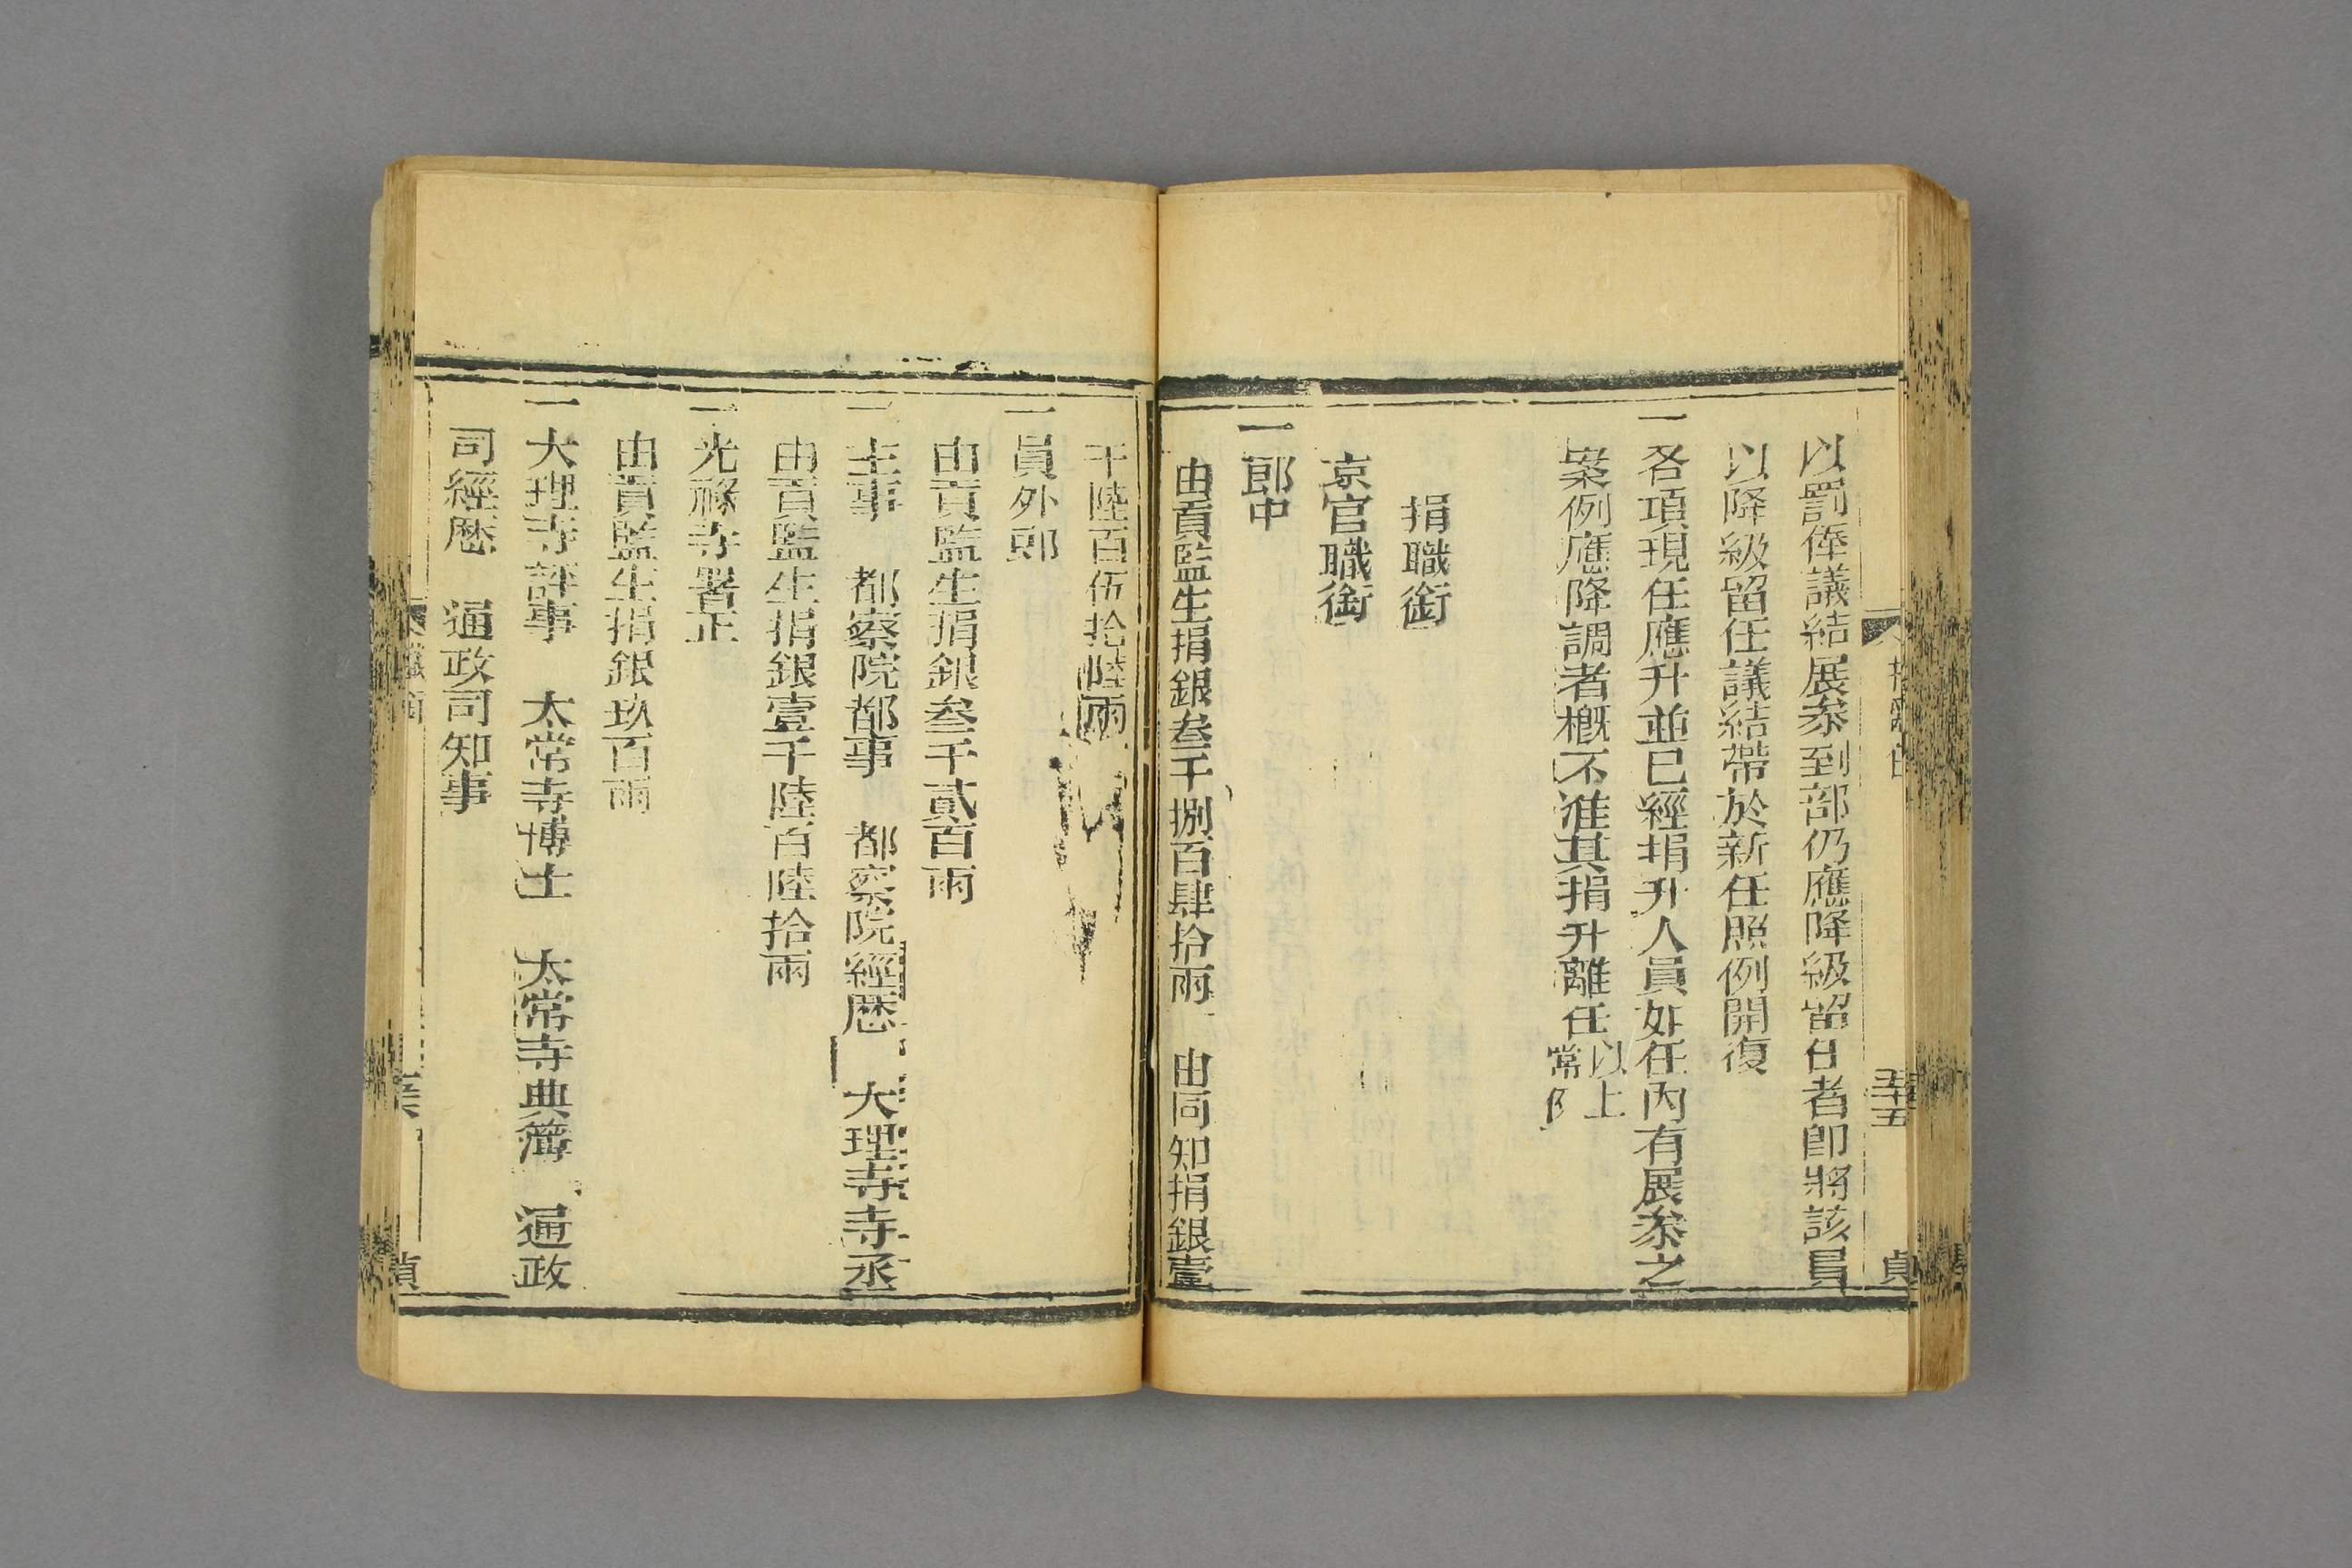 以罰俸議結展叅到部仍應降級留任者卽將該員
以降級留任議結帶於新任照例開復
一各項現任應升並已經捐升人員如任內有展叅之
案例應降調者槪不准其捐升離任以上常例
捐職銜
京官職銜
一郎中
由貢監生捐銀叁千捌百肆拾兩 由同知捐銀壹
千陸百伍拾陸兩
一員外郎
由貢監生捐銀叁千貳百兩
一主事 都察院都事 都察院經歷 大理寺寺丞
由貢監生捐銀壹千陸百陸拾兩
一光祿寺署正
由貢監生捐銀玖百兩
一大理寺評事 太常寺博士 太常寺典簿 通政
司經歷 通政司知事
貞